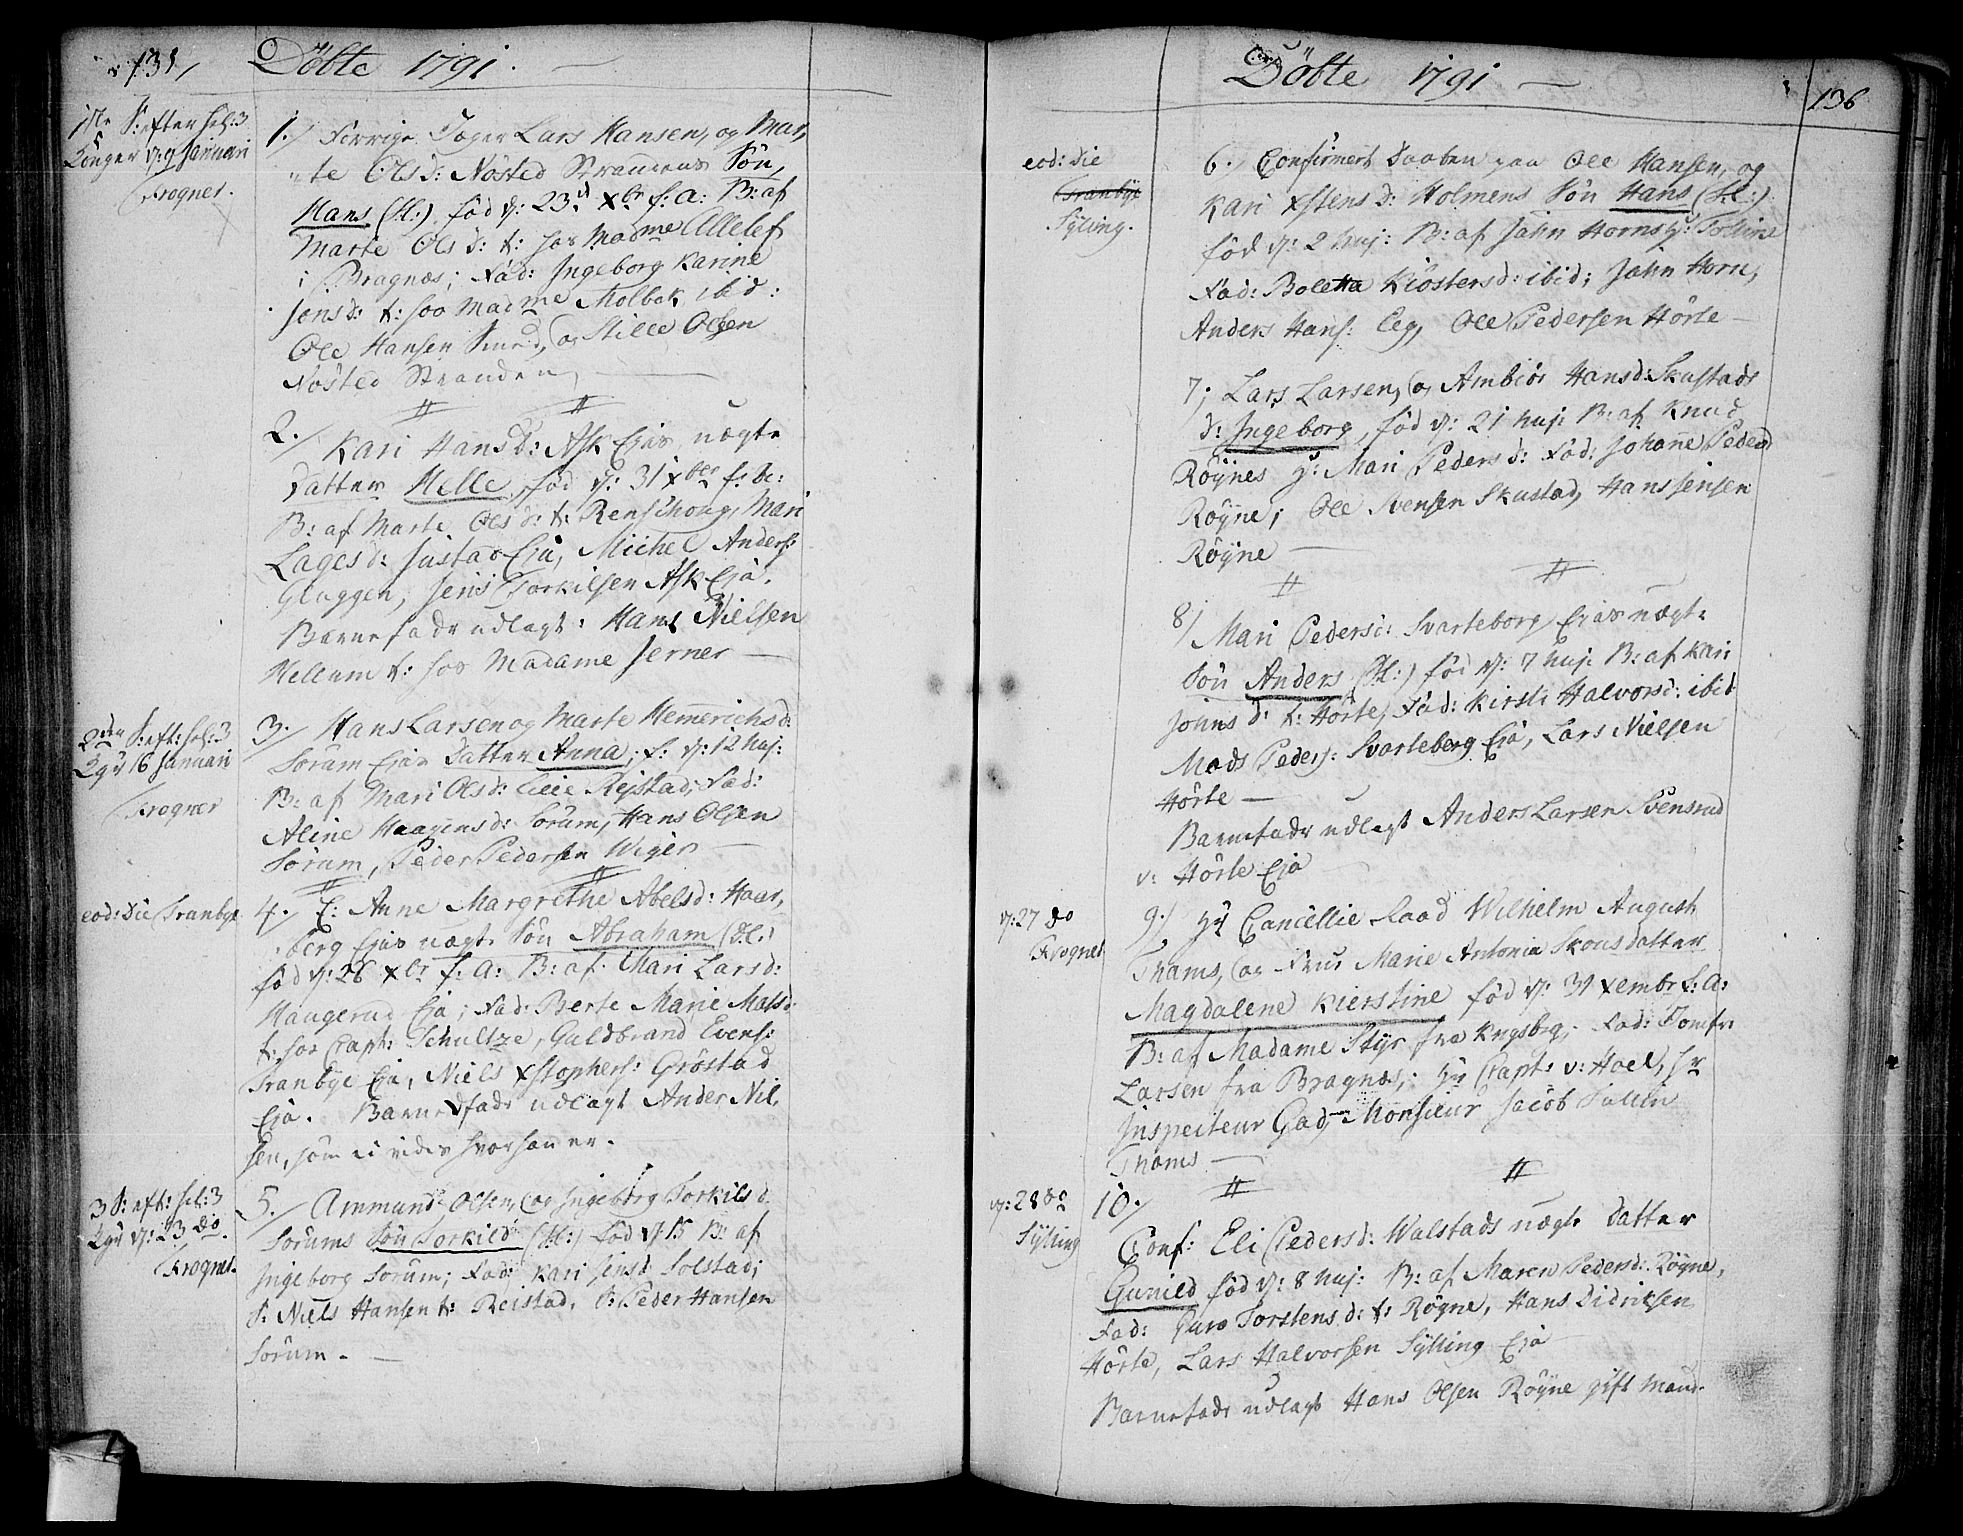 131,
Döbte 1791.
1ste S: efter hel: 3
Konger d: 9 Januari
Frogner.
1./ Forrige Jæger Lars Hansen, og Mar,
te Olsd: Nösted Strandens Sön,
Hans (Hl:) föd d: 23d Xbr f: A: B: af
Marte Olsd: t: hos Madme Ellelef
i Bragnæs; Fad: Ingeborg Karine
Jensd: t: hos Madme Molbek ibid:
Ole Hansen Smed, og Stille Olsen
Nösted Stranden,
2./ Kari Hansd: Ask Ejes uægte
Datter Helle, föd d: 31 Xbr f: A:
B: af Marte Olsd: t: Renskoug, Mari
Lagesd: Justad Eje, Michel Anders:
Gluggen, Jens Torkilsen Ask Eje.
Barnefader udlagt: Hans Nielsen
Hellum t: hos Madame Jerner
2den S: eft: hel: 3
Kgr 16 Januari
Frogner
3./ Hans Larsen og Marte Hemerichsd:
Sörum Ejes Datter Anna; f: d: 12 huj:
B: af Mari Olsd: Reistad; Fad:
Aline Haagensd: Sörum, Hans Olsen
Sörum, Peder Pedersen Wiger
eod: die Tranbye
4./ E: Anne Margrethe Abelsd: Haar,
berg Ejes uægte Sön Abraham (Hl:)
föd d: 26 Xbr f: A: B: af Mari Larsd:
Haugerud Eje; Fad: Berte Marie Matsd:
t: hos Capt: Schultze, Guldbrand Evens:
Tranbye Eje, Niels Xstophers: Gröstad
Eje. Barnefader udlagt Ander Nil,
sen, som ei vides hvor han er.
3 S: eft: hel: 3
Kgr d: 23 do
Frogner.
5./ Ammund Olsen, og Ingeborg Torkilsd:
Sörums Sön Torkild (Hl:) föd d: 15 B: af
Ingeborg Sörum; Fad: Kari Jensd: Solstad;
S: Niels Hansen t: Reistad, S: Peder Hansen
Sörum.
Döbte 1791
136
eod: die
Tranbye
Sylling.
6./ Confirmert Daaben paa Ole Hansen, og
Kari Xstensd: Holmens Sön Hans (Hl:)
föd d: 2 huj: B: af Jahn Horns H: Toline
Fad: Boletta Klöstersd: ibid; Jahn Horn,
Anders Hans: Eeg, Ole Pedersen Hörte
7; Lars Larsen, og Ambiör Hansd: Skustads
d: Ingeborg, föd d: 21 huj: B: af Knud
Röynes H: Mari Pedersd: Fad: Johanne Pedersd
Röyne; Ole Svensen Skustad, Hans Jensen
Röyne
8/ Mari Pedersd: Svarteborg Ejes uægte
Sön Anders (Hl:) föd d: 7 huj: B: af Kari
Johnsd: t: Hörte, Fad: Kirsti Halvorsd: ibid
Mads Peders: Svarteberg Eje, Lars Nielsen
Hörte
Barnefader udlagt Anders Larsen Svensrud
v: Hörte Eje
d: 27 do
Frogner
9./ Hr Cancellie Raad Wilhelm August
Thams, og Frue Marie Antonia Skous datter
Magdalene Kierstine föd d: 31 Xembr f: A:
B: af Madame Styr fra Kngsbrg; Fad: Jomfr:
Larsen fra Bragnæs; Hr Capt: v: Hoel, Hr
Inspecteur Gad, Monsieur Jacob Julin
Thams
d: 28 do
Sylling
10./
Conf: Eli Pedersd: Walstads uægte Datter
Gunild föd d: 8 huj: B: af Maren Pedersd: Röyne,
Fad: Guro Torstensd: t: Röyne, Hans Didriksen
Hörte, Lars Halvorsen Sylling Eje
Barnefader udlagt Hans Olsen Röyne gift Mand.